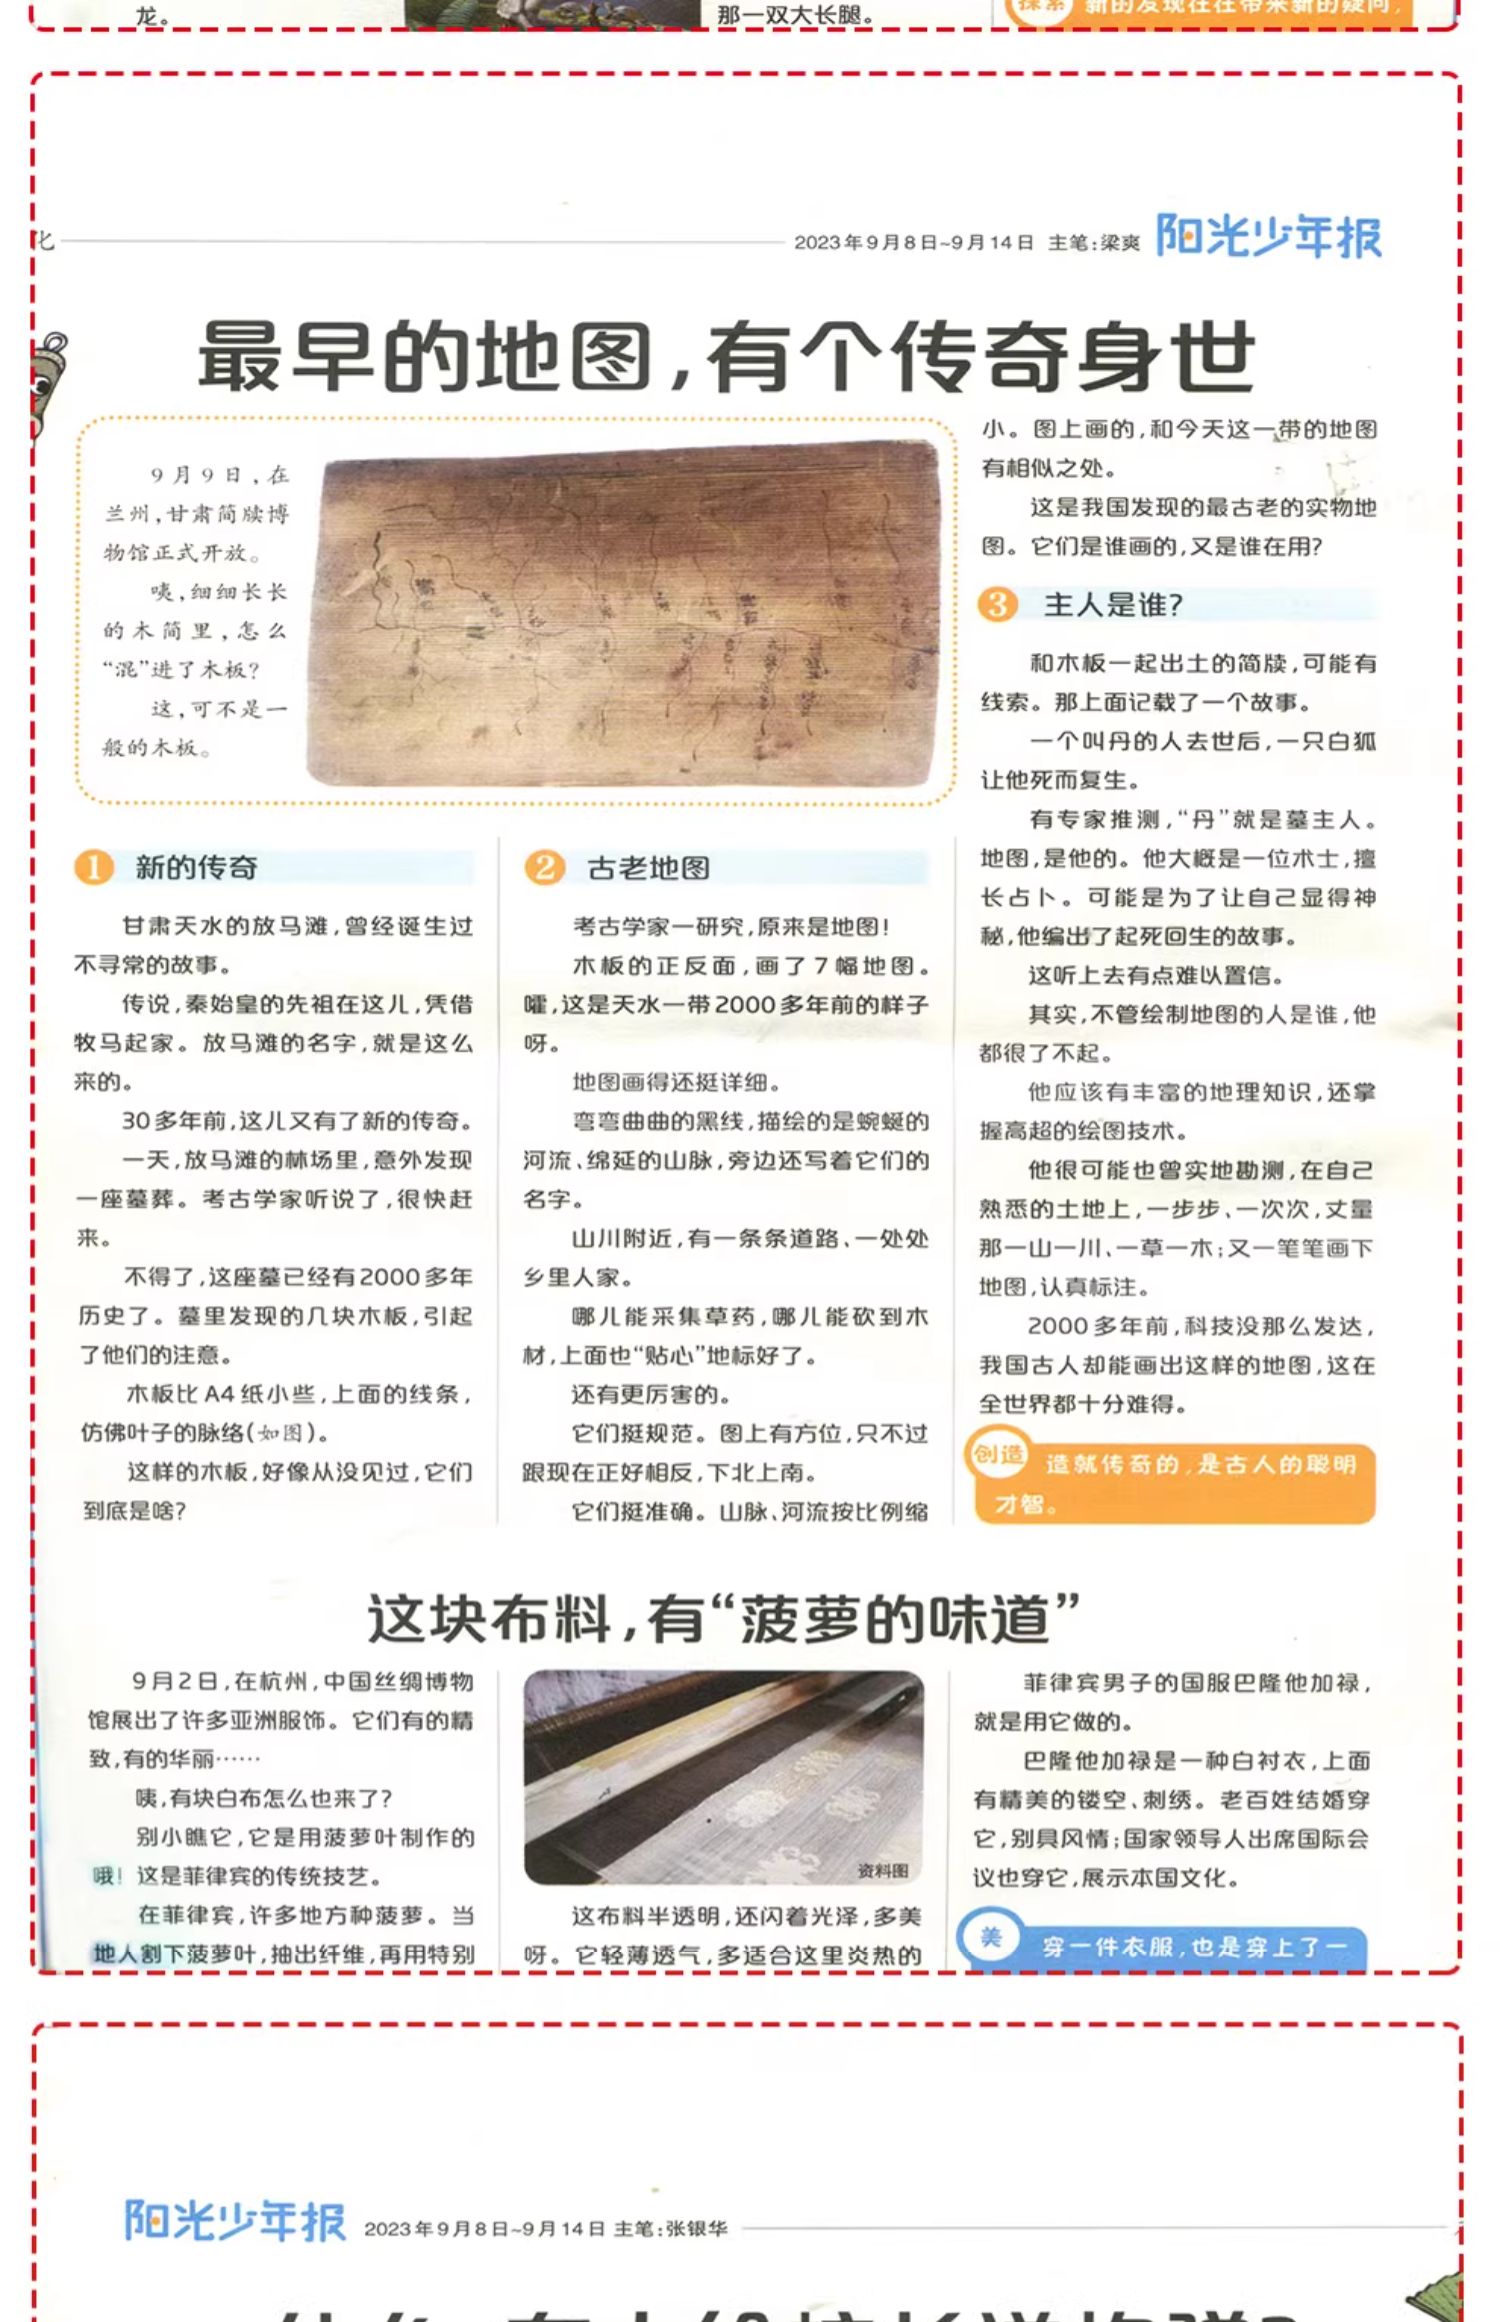 龙。
那一双大长腿。
探索
新的发现往往带来新的疑问，
化
2023年9月8日~9月14日 主笔：梁爽
阳光少年报
最早的地图，有个传奇身世
9月9日，在
兰州，甘肃简牍博
物馆正式开放。
咦，细细长长
的木简里，怎么
“混”进了木板？
这，可不是一
般的木板。
1 新的传奇
甘肃天水的放马滩，曾经诞生过
不寻常的故事。
传说，秦始皇的先祖在这儿，凭借
牧马起家。放马滩的名字，就是这么
来的。
30多年前，这儿又有了新的传奇。
一天，放马滩的林场里，意外发现
一座墓葬。考古学家听说了，很快赶
来。
不得了，这座墓已经有2000多年
历史了。墓里发现的几块木板，引起
了他们的注意。
木板比A4纸小些，上面的线条，
仿佛叶子的脉络（如图）。
这样的木板，好像从没见过，它们
到底是啥？
2 古老地图
考古学家一研究，原来是地图！
木板的正反面，画了7幅地图。
嚯，这是天水一带2000多年前的样子
呀。
地图画得还挺详细。
弯弯曲曲的黑线，描绘的是蜿蜒的
河流、绵延的山脉，旁边还写着它们的
名字。
山川附近，有一条条道路、一处处
乡里人家。
哪儿能采集草药，哪儿能砍到木
材，上面也“贴心”地标好了。
还有更厉害的。
它们挺规范。图上有方位，只不过
跟现在正好相反，下北上南。
它们挺准确。山脉、河流按比例缩
小。图上画的，和今天这一带的地图
有相似之处。
这是我国发现的最古老的实物地
图。它们是谁画的，又是谁在用？
3 主人是谁？
和木板一起出土的简牍，可能有
线索。那上面记载了一个故事。
一个叫丹的人去世后，一只白狐
让他死而复生。
有专家推测，“丹”就是墓主人。
地图，是他的。他大概是一位术士，擅
长占卜。可能是为了让自己显得神
秘，他编出了起死回生的故事。
这听上去有点难以置信。
其实，不管绘制地图的人是谁，他
都很了不起。
他应该有丰富的地理知识，还掌
握高超的绘图技术。
他很可能也曾实地勘测，在自己
熟悉的土地上，一步步、一次次，丈量
那一山一川、一草一木；又一笔笔画下
地图，认真标注。
2000多年前，科技没那么发达，
我国古人却能画出这样的地图，这在
全世界都十分难得。
创造
造就传奇的，是古人的聪明
才智。
这块布料，有“菠萝的味道”
9月2日，在杭州，中国丝绸博物
馆展出了许多亚洲服饰。它们有的精
致，有的华丽……
咦，有块白布怎么也来了？
别小瞧它，它是用菠萝叶制作的
哦！这是菲律宾的传统技艺。
在菲律宾，许多地方种菠萝。当
地人割下菠萝叶，抽出纤维，再用特别
资料图
这布料半透明，还闪着光泽，多美
呀。它轻薄透气，多适合这里炎热的
菲律宾男子的国服巴隆他加禄，
就是用它做的。
巴隆他加禄是一种白衬衣，上面
有精美的镂空、刺绣。老百姓结婚穿
它，别具风情；国家领导人出席国际会
议也穿它，展示本国文化。
美
穿一件衣服，也是穿上了一
阳光少年报
2023年9月8日~9月14日 主笔：张银华